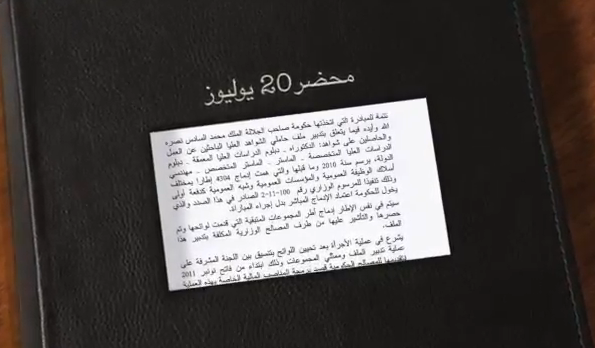 محضر 20 يوليوز
تتمة للمبادرة التي اتخذتها حكومة صاحب الجلالة الملك محمد السادس نصره
الله وأيده فيما يتعلق بتدبير ملف حاملي الشواهد العليا الباحثين عن العمل
والحاصلين على شواهد: الدكتوراه - دبلوم الدراسات العليا المعمقة - دبلوم
الدراسات العليا المتخصصة - الماستر - الماستر المتخصص - مهندسي
الدولة، برسم سنة 2010 وما قبلها والتي همت إدماج 4304 إطارا بمختلف
أسلاك الوظيفة العمومية والمؤسسات العمومية وشبه العمومية كدفعة أولى
وذلك تنفيذا للمرسوم الوزاري رقم 100-11-2 الصادر في هذا الصدد والذي
يخول للحكومة اعتماد الإدماج المباشر بدل إجراء المباراة.
سيتم في نفس الإطار إدماج أطر المجموعات المتبقية التي قدمت لوائحها وتم
حصرها والتأشير عليها من طرف المصالح الوزارية المكلفة بتدبير هذا
الملف.
يشرع في عملية الأجرأة بعد تحيين اللوائح بتنسيق بين اللجنة المشرفة على
عملية تدبير الملف وممثلي المجموعات وذلك ابتداء من فاتح نونبر 2011
لتقديمها للمصالح الحكومية قصد برمجة المناصب المالية الخاصة بهذه العملية